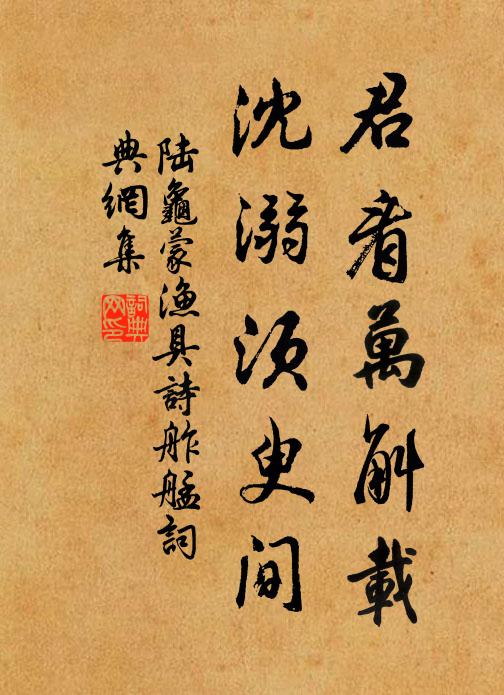 君看萬斛載
沈溺須臾間
陸龜蒙漁具詩舴艋詞
典網集
詞典
网印